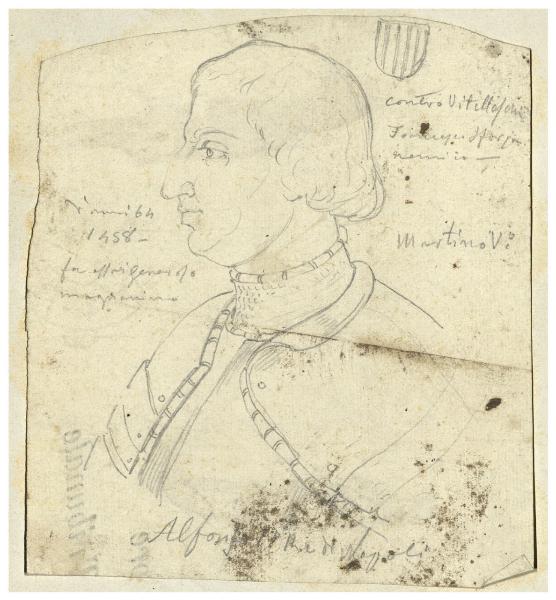 contro Vitelleschi
Francesco Sforza
nemico —
d'anni 64
1458 –
fu assai generoso
magnanimo
Martino V.º
Alfonso Re di Napoli